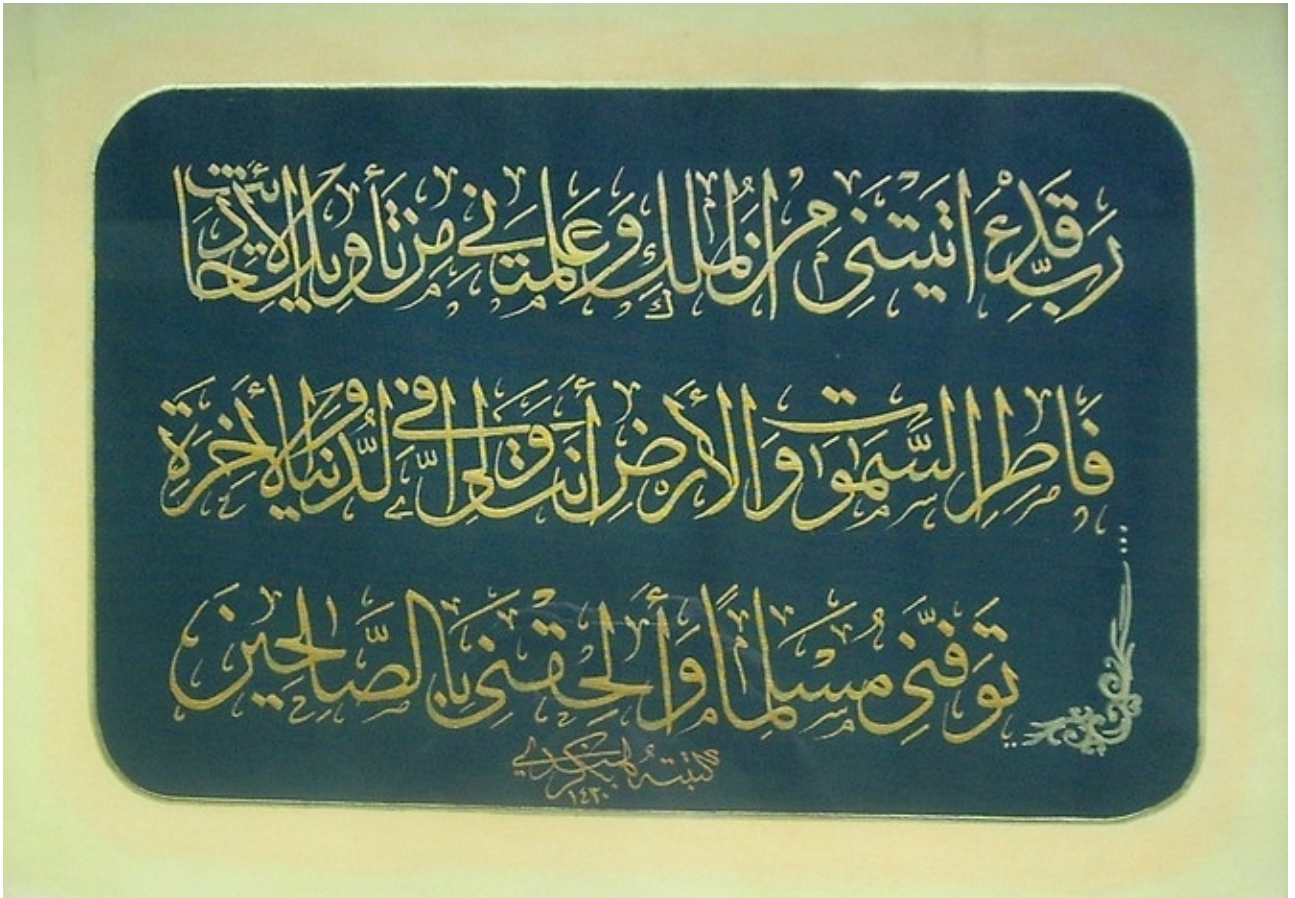 رَبِّ قَدْ ءَاتَيْتَنِي مِنَ الْمُلْكِ وَعَلَّمْتَنِي مِنْ تَأْوِيلِ الْأَحَادِيثِ
فَاطِرَ السَّمٰوٰتِ وَالْأَرْضِ أَنْتَ وَلِيِّ فِي الدُّنْيَا وَالْأٓخِرَةِ
تَوَفَّنِي مُسْلِمًا وَأَلْحِقْنِي بِالصَّالِحِينَ
كتبته
١٤٣٠